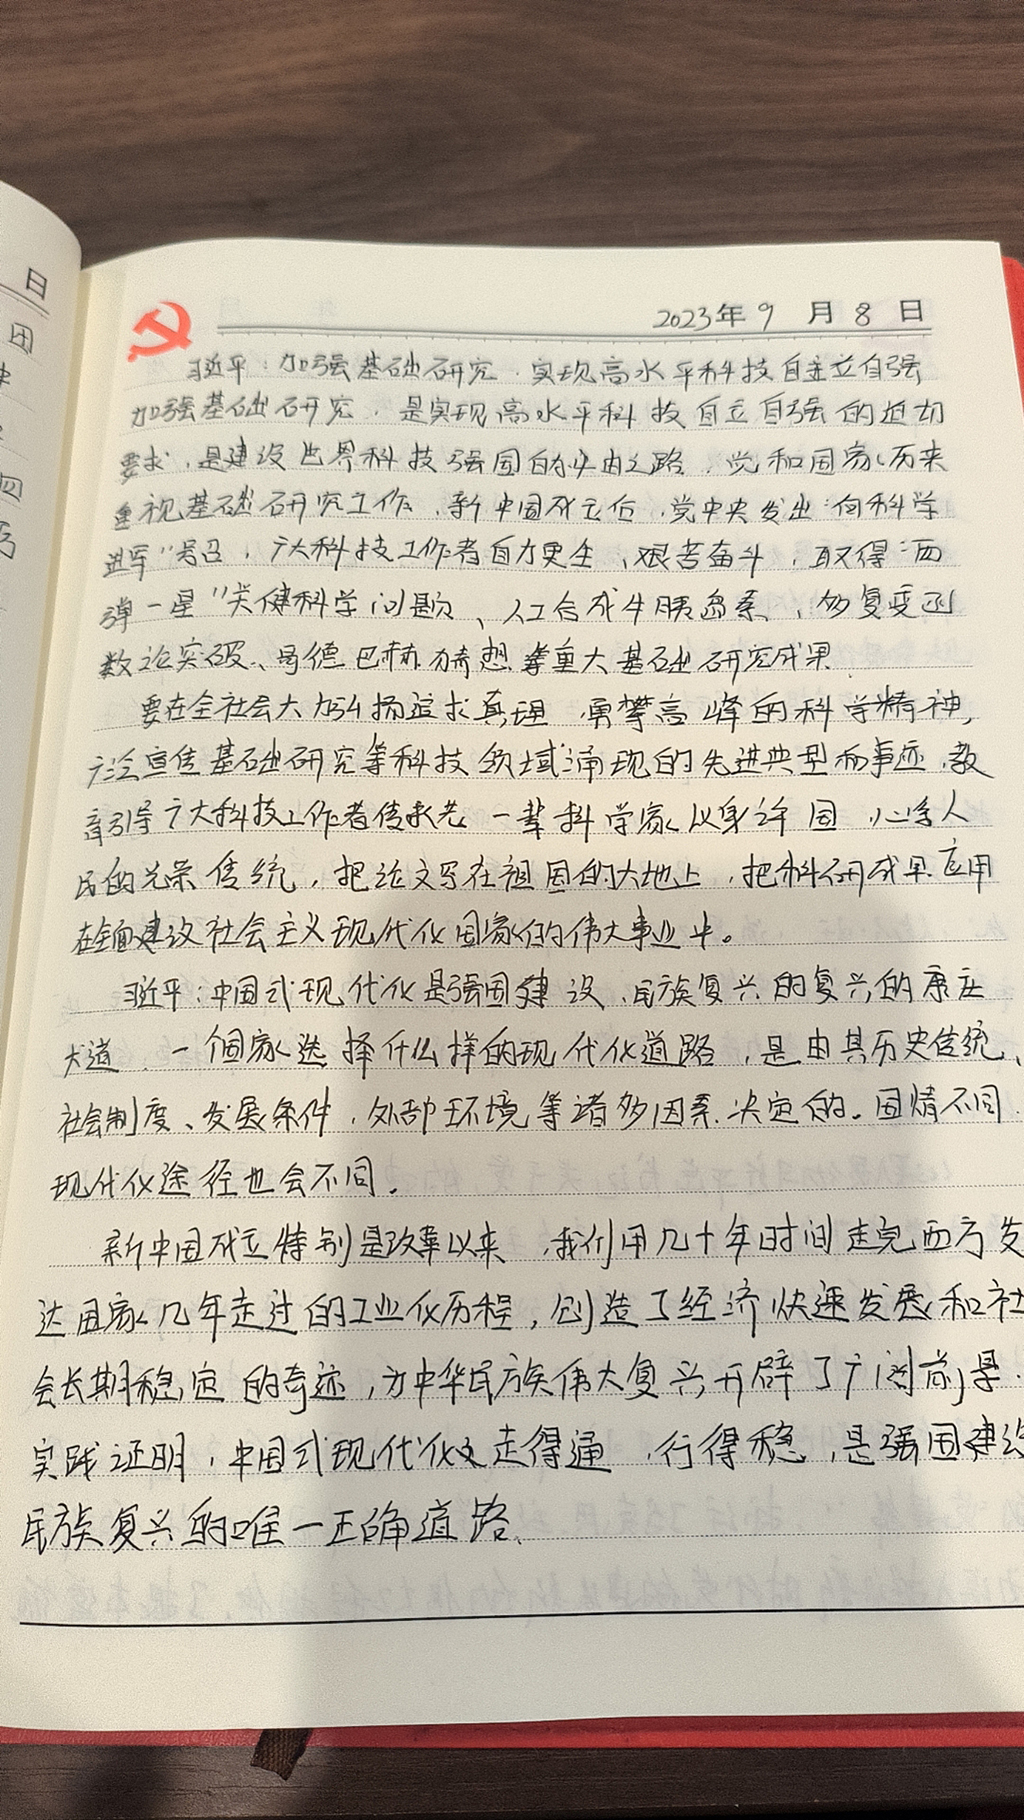 日
团
四
2023年9月8日
习近平:加强基础研究.实现高水平科技自主立自强
加强基础研究,是实现高水平科技自立自强的迫切
要求,是建设世界科技强国的必由之路.党和国家历来
重视基础研究工作,新中国成立后,党中央发出"向科学
进军"号召,广大科技工作者自力更生,艰苦奋斗,取得"两
弹一星"关健科学问题、人工合成牛胰岛素,多复变函
数论突破、哥德巴赫猜想等重大基础研究成果.
要在全社会大力弘扬追求真理 勇攀高峰的科学精神,
广泛宣传基础研究等科技领域涌现的先进典型和事迹,教
育引导广大科技工作者传承老一辈科学家以身许国 心系人
民的光荣传统,把论文写在祖国的大地上,把科研成果应用
在全面建设社会主义现代化国家的伟大事业中。
习近平:中国式现代化是强国建设、民族复兴的复兴的康庄
大道.一个国家选择什么样的现代化道路,是由其历史传统、
社会制度、发展条件,外部环境等诸多因素决定的。国情不同.
现代化途径也会不同.
新中国成立特别是改革以来,我们用几十年时间走完西方发
达国家几年走过的工业化历程,创造了经济快速发展和社
会长期稳定的奇迹,为中华民族伟大复兴开辟了广阔前景.
实践证明,中国式现代化走得通,行得稳,是强国建设
民族复兴的唯一正确道路.